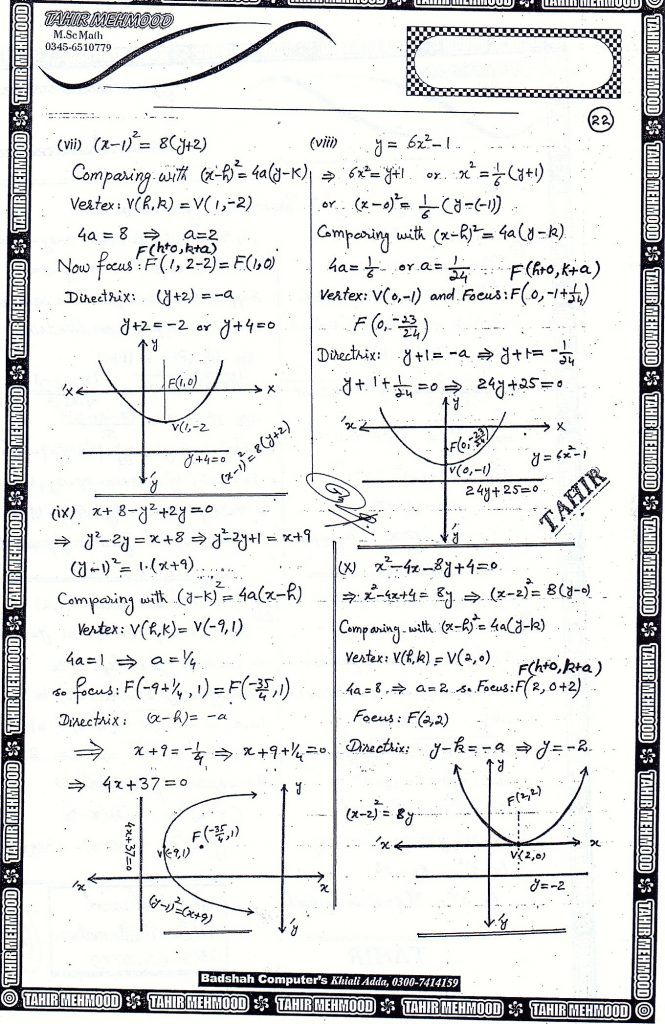 TAHIR MEHMOOD
M.Sc Math
0345-6510779
22
(vii) (x-1)² = 8(y+2)
Comparing with (x-h)² = 4a(y-k)
Vertex: V(h,k) = V(1,-2)
4a = 8 ⇒ a=2
F(h+0,k+a)
Now focus: F(1, 2-2) = F(1,0)
Directrix: (y+2) = -a
y+2 = -2 or y+4=0
y
F(1,0)
'x
x
V(1,-2
y+4=0
(x-1)² = 8(y+2)
'y
(viii) y = 6x²-1
⇒ 6x² = y+1 or x² = 1/6 (y+1)
or (x-0)² = 1/6 (y-(-1))
Comparing with (x-h)² = 4a(y-k)
4a = 1/6 or a = 1/24 F(h+0, k+a)
Vertex: V(0,-1) and Focus: F(0, -1+1/24)
F(0, -23/24)
Directrix: y+1 = -a ⇒ y+1 = -1/24
y+1+1/24 = 0 ⇒ 24y+25=0
y
'x
x
F(0,-23/24)
V(0,-1)
y = 6x²-1
24y+25=0
'y
TAHIR
(ix) x+8-y²+2y=0
⇒ y²-2y = x+8 ⇒ y²-2y+1 = x+9
(y-1)² = 1.(x+9)
Comparing with (y-k)² = 4a(x-h)
Vertex: V(h,k) = V(-9,1)
4a=1 ⇒ a=1/4
so focus: F(-9+1/4, 1) = F(-35/4, 1)
Directrix: (x-h) = -a
⇒ x+9 = -1/4 ⇒ x+9+1/4=0
⇒ 4x+37=0
y
4x+37=0
F(-35/4,1)
V(-9,1)
'x
x
(y-1)²=(x+9)
'y
(x) x²-4x-8y+4=0
⇒ x²-4x+4 = 8y ⇒ (x-2)² = 8(y-0)
Comparing with (x-h)² = 4a(y-k)
Vertex: V(h,k) = V(2,0)
F(h+0,k+a)
4a=8 ⇒ a=2 so Focus: F(2, 0+2)
Focus: F(2,2)
Directrix: y-k = -a ⇒ y=-2
y
F(2,2)
(x-2)² = 8y
'x
x
V(2,0)
y=-2
'y
Badshah Computer's Khiali Adda, 0300-7414159
TAHIR MEHMOOD TAHIR MEHMOOD TAHIR MEHMOOD TAHIR MEHMOOD TAHIR MEHMOOD
TAHIR MEHMOOD TAHIR MEHMOOD TAHIR MEHMOOD TAHIR MEHMOOD TAHIR MEHMOOD TAHIR MEHMOOD TAHIR MEHMOOD
TAHIR MEHMOOD TAHIR MEHMOOD TAHIR MEHMOOD TAHIR MEHMOOD TAHIR MEHMOOD TAHIR MEHMOOD TAHIR MEHMOOD TAHIR MEHMOOD